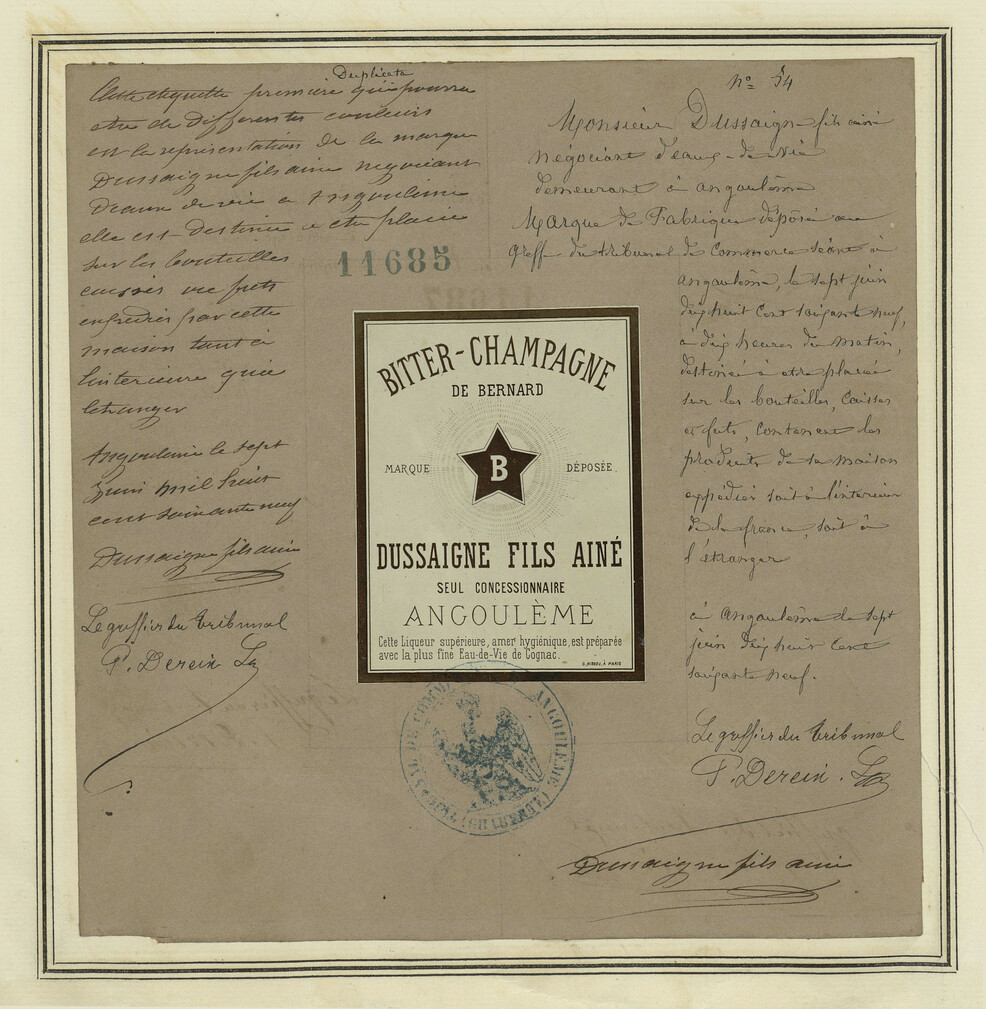 Duplicata
Cette etiquette première qui pourra
etre de differentes couleurs
est la représentation de la marque
Dussaigne fils aine negociant
Deaux de vie a Angoulême
elle est destinée a etre placée
sur les bouteilles
caisses ou futs
expedies par cette
maison tant a
linterieure qu'a
letranger
Angoulême le sept
Juin mil huit
cent soixante neuf
Dussaigne fils ainé
Le greffier du tribunal
P. Derein
11685
BITTER-CHAMPAGNE
DE BERNARD
MARQUE B DÉPOSÉE
DUSSAIGNE FILS AINÉ
SEUL CONCESSIONNAIRE
ANGOULÊME
Cette Liqueur supérieure, amer hygiénique, est préparée
avec la plus fine Eau-de-Vie de Cognac.
À PARIS
TRIBUNAL DE COMMERCE ANGOULEME (CHARENTE)
No 54
Monsieur Dussaigne fils ainé
négociant d'eaux-de-vie
demeurant à angoulême
Marque de Fabrique déposé au
greffe du tribunal de Commerce séant à
angoulême, le sept juin
dix huit cent soixante neuf,
à dix heures du matin,
destinée à etre placée
sur les bouteilles, Caisses
et futs, contenant les
produits de sa maison
expédiés soit à l'interieur
de la france, soit à
l'étranger
à angoulême le sept
juin dix huit cent
soixante neuf.
Le greffier du tribunal
P. Derein
Dussaigne fils ainé